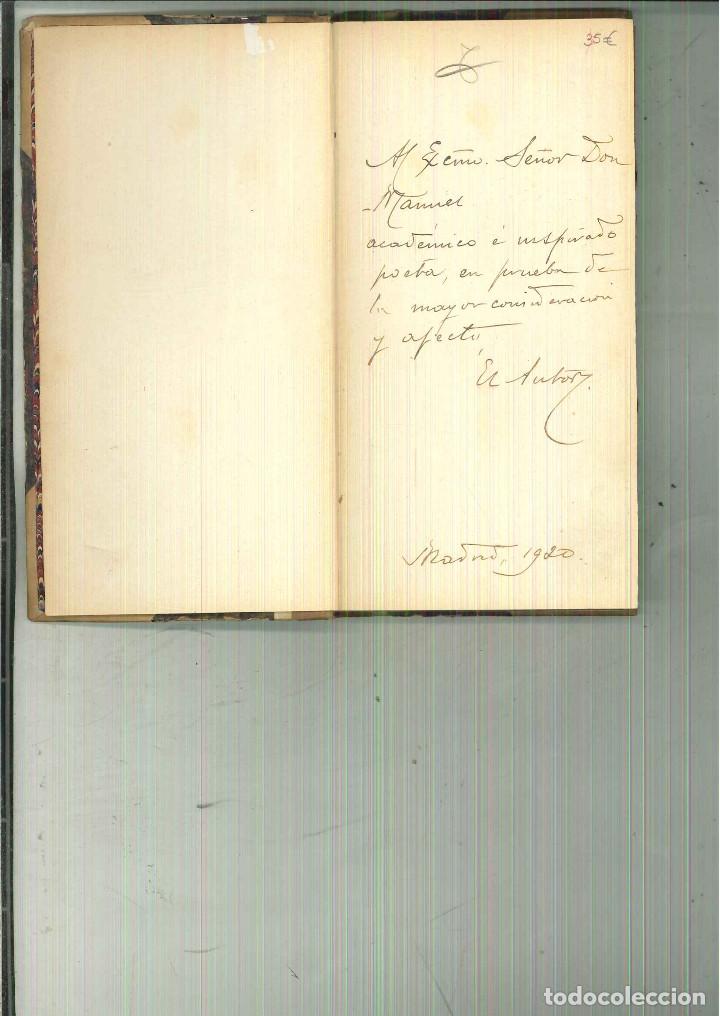 35€
Al Excmo. Señor Don
Manuel
académico é inspirado
poeta, en prueba de
la mayor consideración
y afecto,
El Autor.
Madrid, 1920.
todocoleccion
todocoleccion.net